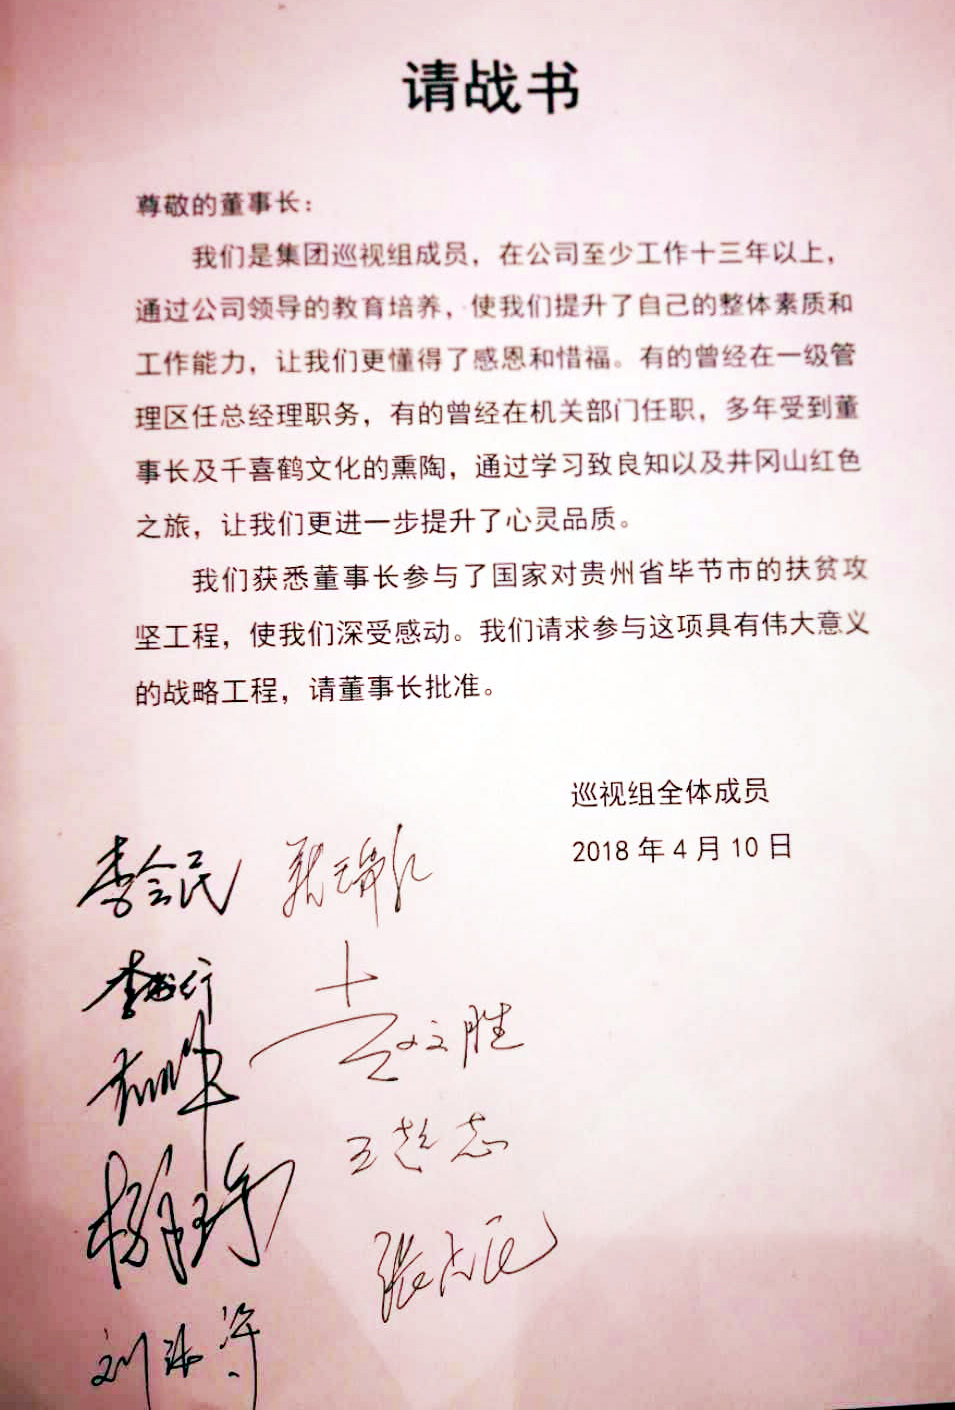 请战书
尊敬的董事长：
我们是集团巡视组成员，在公司至少工作十三年以上，
通过公司领导的教育培养，使我们提升了自己的整体素质和
工作能力，让我们更懂得了感恩和惜福。有的曾经在一级管
理区任总经理职务，有的曾经在机关部门任职，多年受到董
事长及千喜鹤文化的熏陶，通过学习致良知以及井冈山红色
之旅，让我们更进一步提升了心灵品质。
我们获悉董事长参与了国家对贵州省毕节市的扶贫攻
坚工程，使我们深受感动。我们请求参与这项具有伟大意义
的战略工程，请董事长批准。
巡视组全体成员
2018 年 4 月 10 日
李会民
文胜
王超志